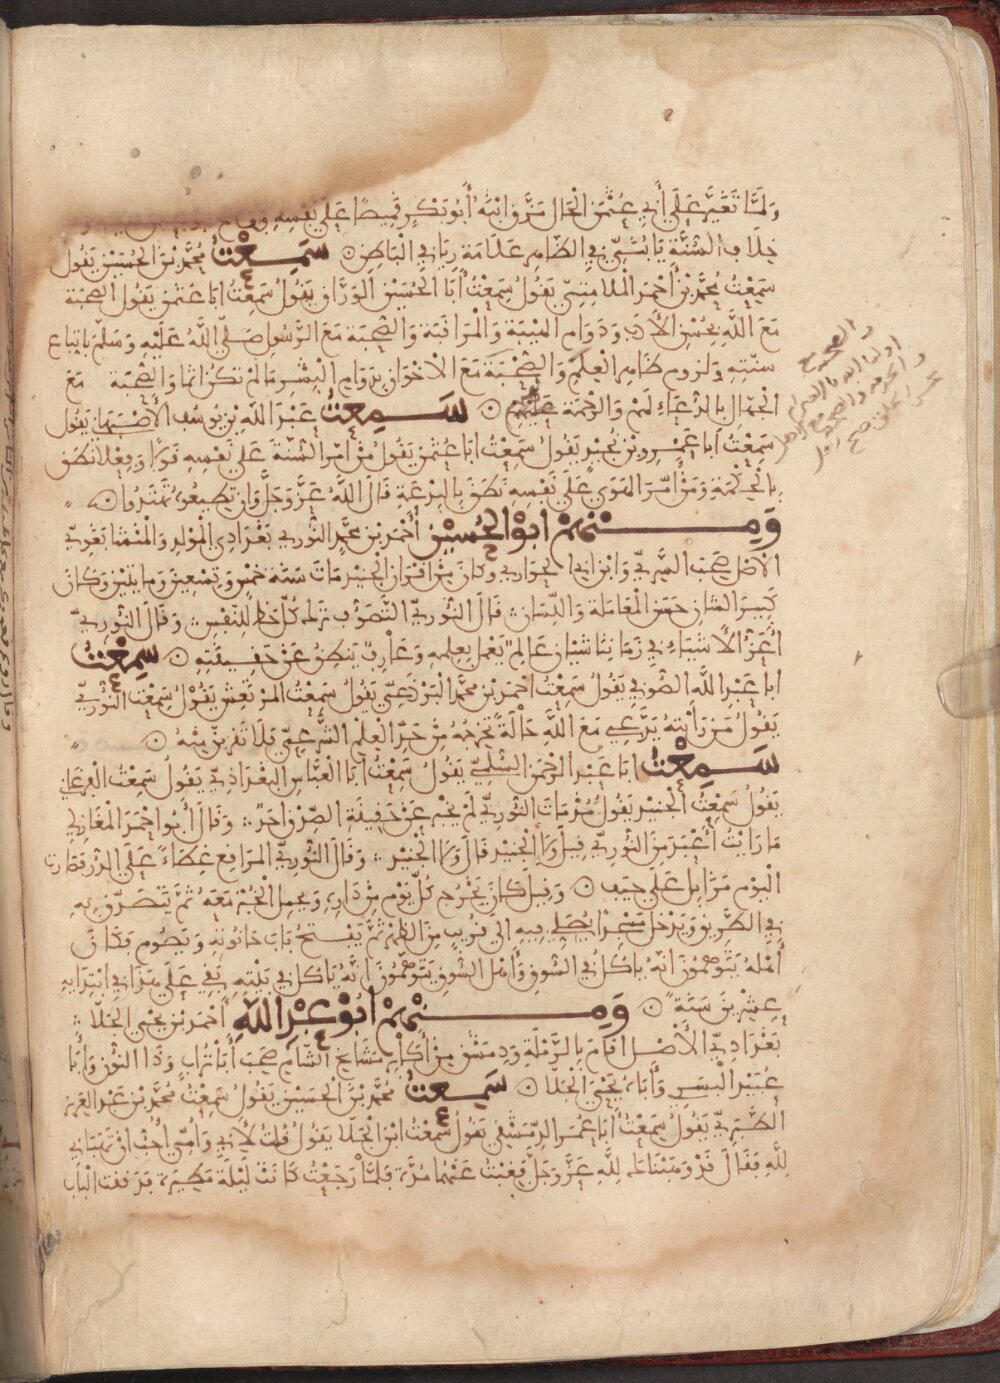 وَلَمَّا تَغَيَّرَ عَلَى أَبِي عُثْمَن الْحَال مَزَّقَ ابْنُهُ أَبُو بَكْرٍ قَمِيصًا عَلَى نَفْسِهِ وفتح
خِلَاف السُّنَّةِ يَا بُنَيَّ فِي الظَّاهِرِ عَلَامَة رِيَاءٍ فِي الْبَاطِن سَمِعْتُ مُحَمَّدَ بْنَ الْحُسَيْن يَقُول
سَمِعْتُ مُحَمَّد بْن أَحْمَد الْمَلَامَتِيّ يَقُولُ سَمِعْتُ أَبَا الْحُسَيْن الْوَرَّاق يَقُولُ سَمِعْتُ ابَا عثمن يَقُول الصُّحْبَة
مَعَ اللَّهِ بِحُسْنِ الْأَدَب وَدَوَام الهَيْبَة وَالْمُرَاقَبَة وَالصُّحْبَة مَعَ الرَّسُولِ صَلَّى اللَّهُ عَلَيْهِ وَسَلَّمَ بِاتِّبَاع
سنّتِهِ وَلزوم ظَاهِر الْعِلْمِ وَالصُّحْبَة مَعَ الْاخْوَان بِدَوَام الْبِشْرِ مَا لَمْ تكُنْ اثمًا وَالصُّحْبَة مَعَ
الْجُهَّال بِالدُّعَاءِ لَهُمْ وَالرَّحْمَة عَلَيْهِمْ سَمِعْتُ عَبْدَ اللهِ بْن يُوسُف الْأَصْبَهَانِي يَقُول
سَمِعْتُ أَبا عَمْرِو بْن نُجَيْدٍ يَقُولُ سَمِعْتُ ابَا عُثْمن يَقُول مَنْ امّرَ السُّنَّة عَلَى نَفْسِهِ قَوْلًا وَفِعْلا نَطَق
بِالْحِكْمَة وَمَنْ أَمَّرَ الْهَوَى عَلَى نَفْسِهِ نَطَقَ بِالْبِدْعَةِ قَالَ اللَّهُ عَزَّ وَجَلَّ وَإِن تُطِيعُوهُ تَهْتَدُوا
وَمِنْهُمْ ابُو الْحُسَيْن أَحْمَد بْن مُحَمَّدٍ النُّورِي بَغْدَادِي الْمَوْلِد وَالْمَنْشَا بَغَوِيّ
الْأَصْل صَحِبَ السَّرِيّ وَابْن أَبِي الْحَوَارِي وَكَانَ مِنْ أَقْرَان الْجُنَيْد مَاتَ سَنَة خَمْسٍ وَتِسْعِينَ وَمِايتَيْن وَكَانَ
كَبِيرَ الشَّان حَسَن الْمُعَامَلَة وَاللِّسَان قَالَ النُّورِيّ التَّصَوُّف تَرك كُلّ حَظ لِلنَّفْس وَقَالَ النُّورِيّ
أَعَزّ الأَشْيَاءِ فِي زَمَانِنَا شَيْان عَالِمٌ يَعْمَل بِعِلْمِهِ وَعَارِفٌ يَنْطِقُ عَنْ حَقِيقَتِهِ سَمِعْتُ
ابا عَبْد اللَّهِ الصُّوفِي يَقُول سَمِعْتُ احْمَد بْن مُحَمَّد الْبَرْذَعِيّ يَقُول سَمِعْتُ الْمرْتَعِش يَقُول سَمِعْت النُّورِيّ
يَقُول مَن رَأَيْتهُ يَدَّعِي مَعَ اللَّهِ حَالَةً تُخْرِجُهُ عَنْ حَدّ الْعِلْم الشَّرْعِيّ فَلَا تَقْرَبَنّ مِنْهُ
سَمِعْتُ ابَا عَبْد الرَّحْمَن السُّلَمِيّ يَقُولُ سَمِعْتُ أَبَا الْعَبَّاس الْبغْدَاذِيّ يَقُولُ سَمِعْتُ الْفَرْغَانِي
يَقُول سَمِعْتُ الْجُنَيْد يَقُول مُنْذُ مَاتَ النُّورِيّ لَمْ يُخْبِرْ عَنْ حَقِيقَةِ الصِّدْقِ أَحَدٌ وَقَالَ أَبُو احْمَد الْمَغَازِلِي
مَا رَايْتُ أَعْبَدَ مِنَ النُّورِيّ قِيلَ وَلَا الْجُنَيْد قَالَ وَلَا الْجُنَيْد وَقَالَ النُّورِيّ المرَاقِع غِطَاءً عَلَى الدُّرّ فَصَارت
الْيَوْم مَزَابِل عَلَى جِيَف وَقِيلَ كَانَ يَخْرُج كُلّ يَوْمٍ مِنْ دَارِهِ وَيحمِل الْخُبْز مَعَهُ ثُمَّ يَتَصَدَّق بِهِ
فِي الطَّرِيق وَيَدْخل مَسْجِدًا يُصَلِّي فِيهِ الى قَرِيبٍ مِنَ الظُّهْر ثُمَّ يَفْتَحُ بَابَ حَانُوتِهِ وَيَصُوم فَكَانَ
أَهْلهُ يَتَوَهَّمُونَ أَنَّهُ يَاكل فِي السُّوقِ وَأَهْل السُّوقِ يَتَوَهَّمُونَ انَّهُ يَاكل فِي بَيْتِهِ بَقِيَ عَلَى هَذَا فِي ابْتِدَايِهِ
عِشْرِينَ سَنَة وَمِنْهُمْ أَبُو عَبْد اللَّهِ أَحْمَد بْن يَحْيَى الْجَلّا
بَغْدَادِيّ الْأَصْل أَقَامَ بِالرَّمْلَةِ وَدِمَشْق مِنْ أَكَابِر مَشَايِخ الشَّام صَحِبَ أَبَا تُرَابٍ وَذَا النُّون وَأَبَا
عُبَيْد الْبُسْرِي وَأَبَاهُ يَحْيَى الْجَلّا سَمِعْتُ مُحَمَّد بْنَ الْحُسَيْن يَقُول سَمِعْتُ مُحَمَّد بْن عَبْد الْعَزِيز
الطَّبَرِيّ يَقُول سَمِعْتُ أَبَا عُمَر الدِّمَشْقِي يَقُول سَمِعْتُ ابْن الْجَلا يَقُول قُلتُ لِأَبِي وَامِّي أُحِبُّ انْ تَهَبَانِي
لِلَّهِ فَقَالَا قَدْ وَهَبْنَاكَ لِلَّهِ عَزَّ وَجَلَّ فَغِبْتُ عَنْهُمَا مُدَّة فَلَمَّا رَجَعْتُ كَانَتْ لَيْلَة مَطِيرَة فَدَقَقْت الْبَاب